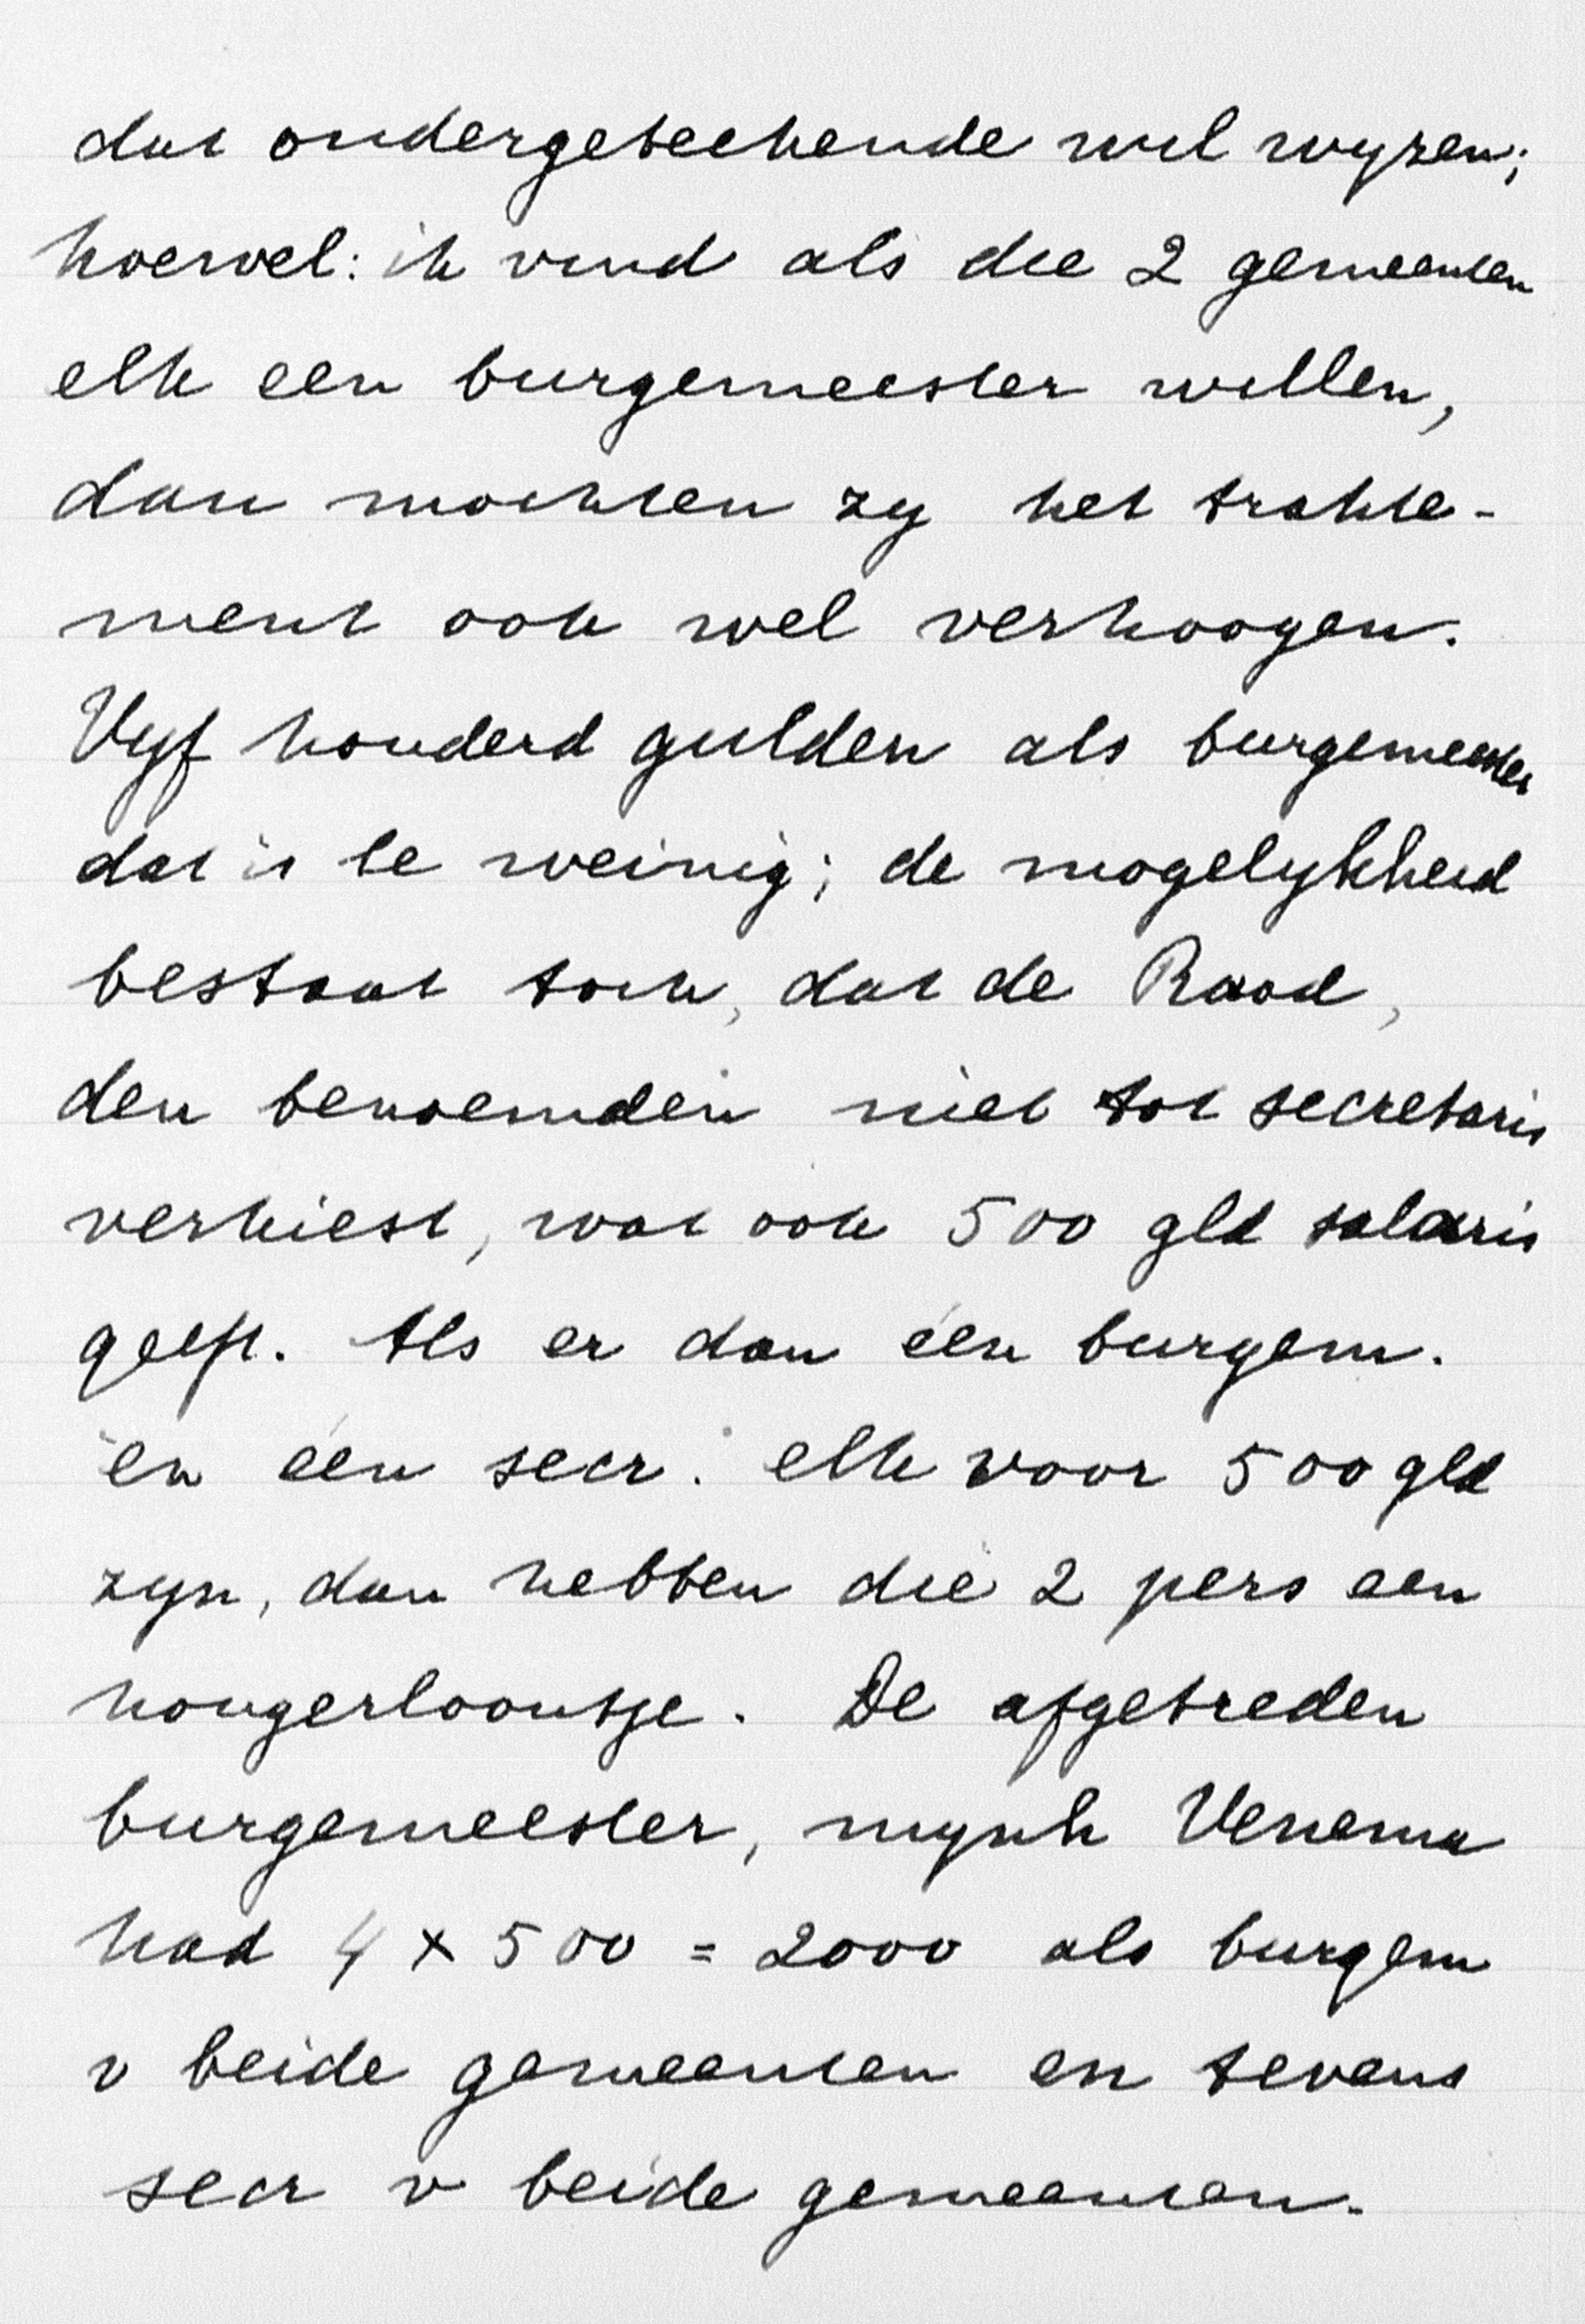 dat ondergeteekende wel wyzen;
hoewel: ik vind als die 2 gemeenten
elk een burgemeester willen,
dan mochten zy het trakte-
ment ook wel verhoogen.
Vyf honderd gulden als burgemeester
dat is te weinig; de mogelykheid
bestaat toch, dat de Raad,
den benoemden niet tot secretaris
verkiest, wat ook 500 gld salaris
geeft. Als er dan één burgem.
en één secr. elk voor 500 gld
zyn, dan hebben die 2 pers een
hongerloontje. De afgetreden
burgemeester, mynh Venema
had 4 x 500 = 2000 als burgem
v beide gemeenten en tevens
secr v beide gemeenten.